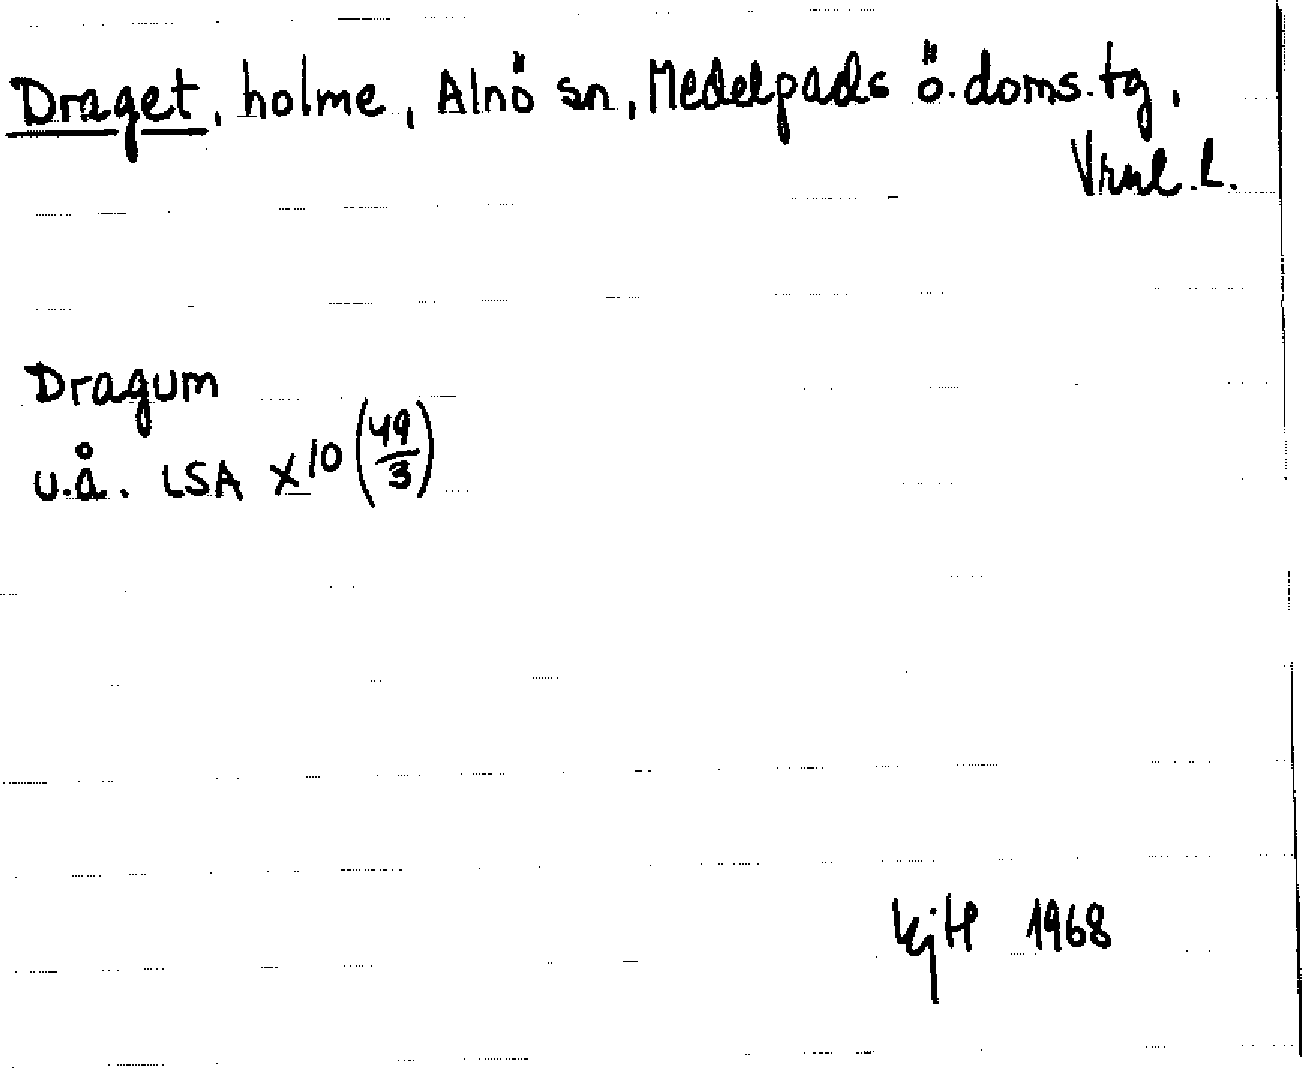 Draget, holme, Alnö sn, Medelpads ö. doms. tg,
Vrnl. L.
Dragum
u.å. LSA X10 (49/3)
KjH 1968